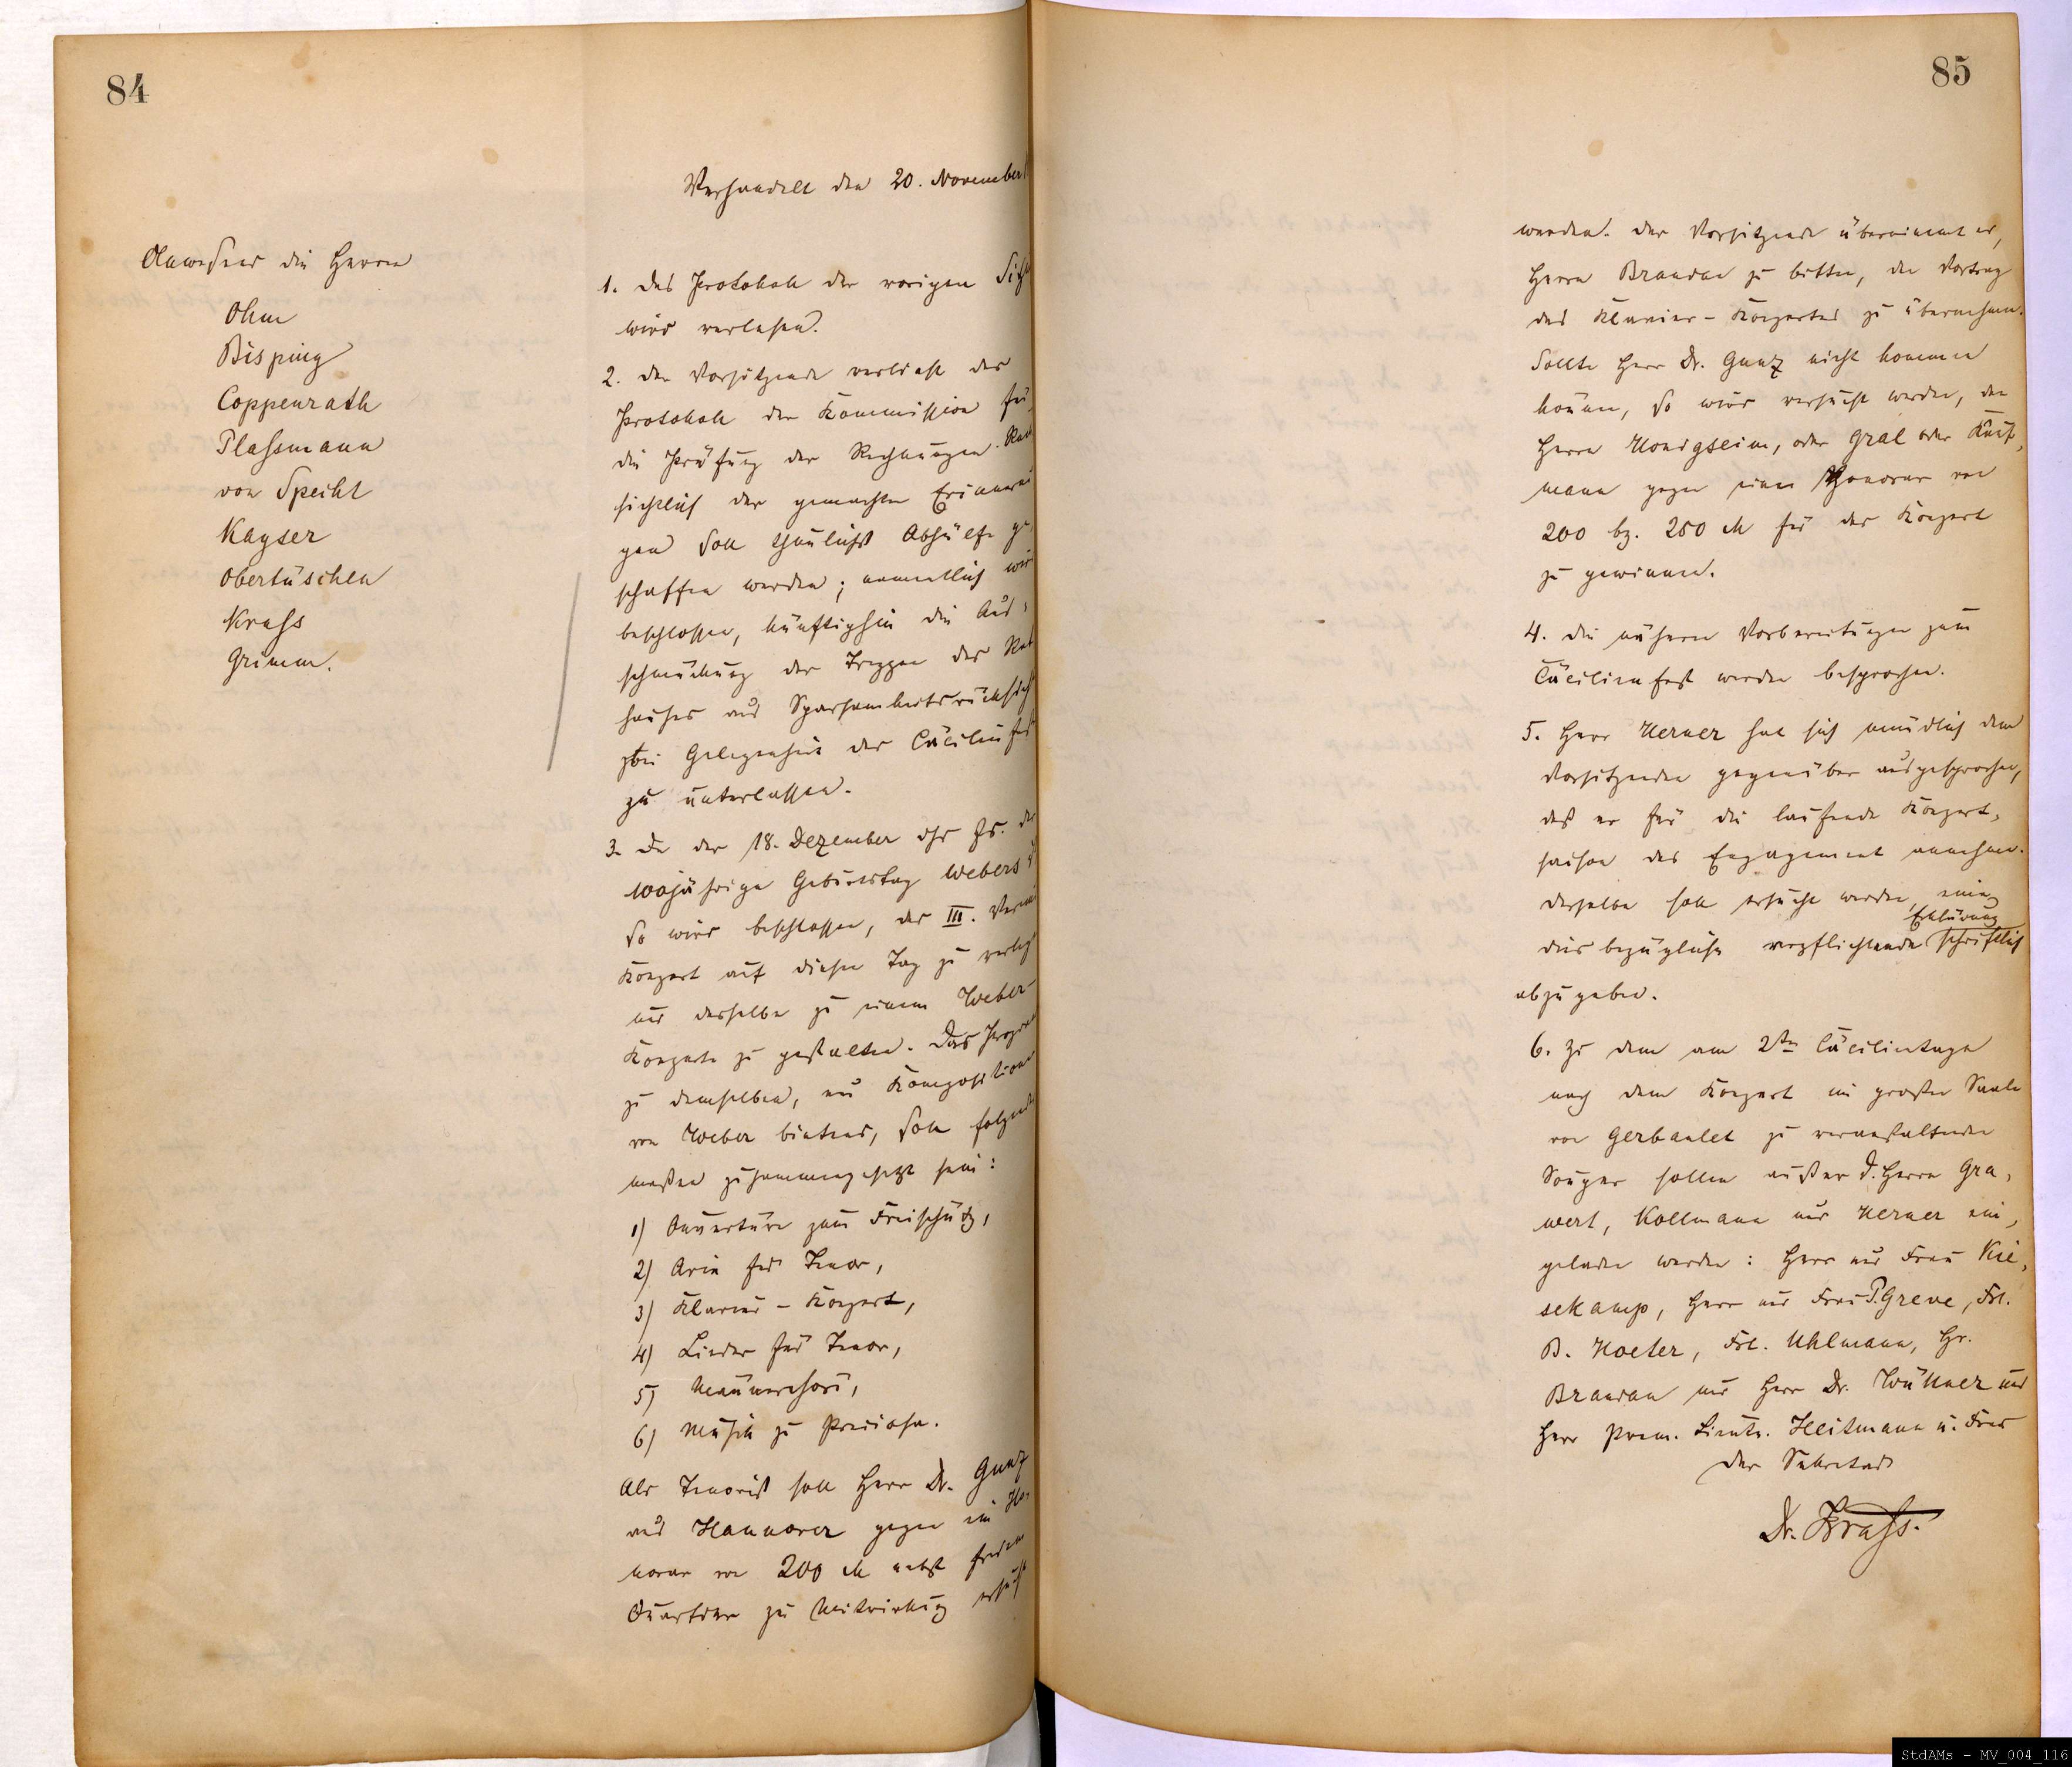 84
Verhandelt den 20. November
Anwesend die Herren
Ohm
Bisping
Coppenrath
Plassmann
von Specht
Kayser
Obertüschen
Krass
Grimm.
1. Das Protokoll der vorigen
wird verlesen.
2. Der Vorsitzende verliest das
Protokoll der Kommission für
die Prüfung der Rechnungen.
sichtlich der gemachten Erinnerun
gen soll thunlichst Abhülfe ge
schaffen werden; namentlich wird
beschlossen, künftighin die Aus-
schmückung der Treppen des Rat
hauses aus Sparsamkeitsrücksicht
bei Gelegenheit des Cäcilienfest
zu unterlassen.
3. Da der 18. Dezember ds Js. der
100jährige Geburtstag Webers
so wird beschlossen, das III. Vereins
Konzert auf diesen Tag zu verlegen
und dasselbe zu einem Weber-
Konzerte zu gestalten. Das Program
zu demselben, nur Kompositionen
von Weber bietend, soll folgender
maßen zusammengesetzt sein:
1) Ouvertüre zum Freischütz,
2) Arie für Tenor,
3) Klavier-Konzert,
4) Lieder für Tenor,
5) Männerchöre,
6) Musik zu Preciosa.
Als Tenorist soll Herr Dr. Gunz
aus Hannover gegen ein Ho-
norar von 200 M nebst freiem
Quartier zu Mitwirkung ersucht
85
werden. Der Vorsitzende übernimmt es,
Herrn Brandau zu bitten, den Vortrag
des Klavier-Konzertes zu übernehmen.
Sollte Herr Dr. Gunz nicht kommen
können, so wird versucht werden, den
Herrn Honigsheim, oder Gral oder Kauf-
mann gegen einen Honorar von
200 bz. 250 M für das Konzert
zu gewinnen.
4. Die nähern Vorbereitungen zum
Cäcilienfest werden besprochen.
5. Herr Herner hat sich mündlich dem
Vorsitzenden gegenüber ausgesprochen,
daß er für die laufende Konzert-
saison das Engagement annehme.
Derselbe soll ersucht werden, eine
Erklärung
diesbezügliche verpflichtende schriftlich
abzugeben.
6. Zu dem am 2ten Cäcilientage
nach dem Konzert im großen Saale
von Gerbaulet zu veranstaltenden
Souper sollen außer d. Herrn Gra-
wert, Kollmann und Herner ein-
geladen werden: Herr und Frau Kie-
sekamp, Herr und Frau P. Greve, Frl.
B. Hoeter, Frl. Uhlmann, Hr.
Brandau und Herr Dr. Wüllner und
Herr Prem. Lieutn. Heitmann u. Frau
Der Sekretär
Dr. Krass.
StdAMs - MV_004_116